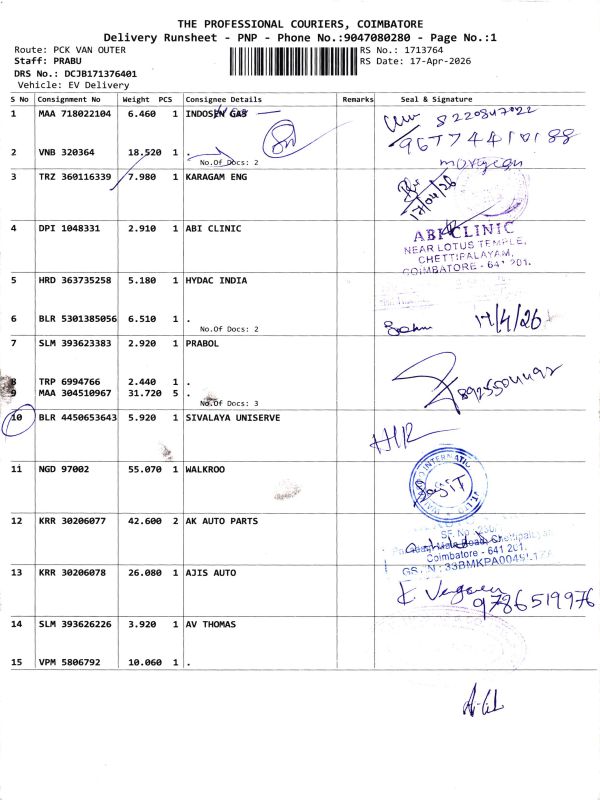 THE PROFESSIONAL COURIERS, COIMBATORE
Delivery Runsheet - PNP - Phone No.:9047080280 - Page No.:1
Route: PCK VAN OUTER
RS No.: 1713764
Staff: PRABU
RS Date: 17-Apr-2026
DRS No.: DCJB171376401
Vehicle: EV Delivery
S No Consignment No Weight PCS Consignee Details Remarks Seal & Signature
1 MAA 718022104 6.460 1 INDOSEN GAS
9677441088
2 VNB 320364 18.520 1 .
No.Of Docs: 2
3 TRZ 360116339 7.980 1 KARAGAM ENG
17/04/26
4 DPI 1048331 2.910 1 ABI CLINIC
ABI CLINIC
NEAR LOTUS TEMPLE,
CHETTIPALAYAM,
COIMBATORE - 641 201.
5 HRD 363735258 5.180 1 HYDAC INDIA
6 BLR 5301385056 6.510 1 .
No.Of Docs: 2
17/4/26
7 SLM 393623383 2.920 1 PRABOL
8 TRP 6994766 2.440 1 .
9 MAA 304510967 31.720 5 .
No.Of Docs: 3
10 BLR 4450653643 5.920 1 SIVALAYA UNISERVE
11 NGD 97002 55.070 1 WALKROO
12 KRR 30206077 42.600 2 AK AUTO PARTS
Coimbatore - 641 201.
13 KRR 30206078 26.080 1 AJIS AUTO
9786519976
14 SLM 393626226 3.920 1 AV THOMAS
15 VPM 5806792 10.060 1 .